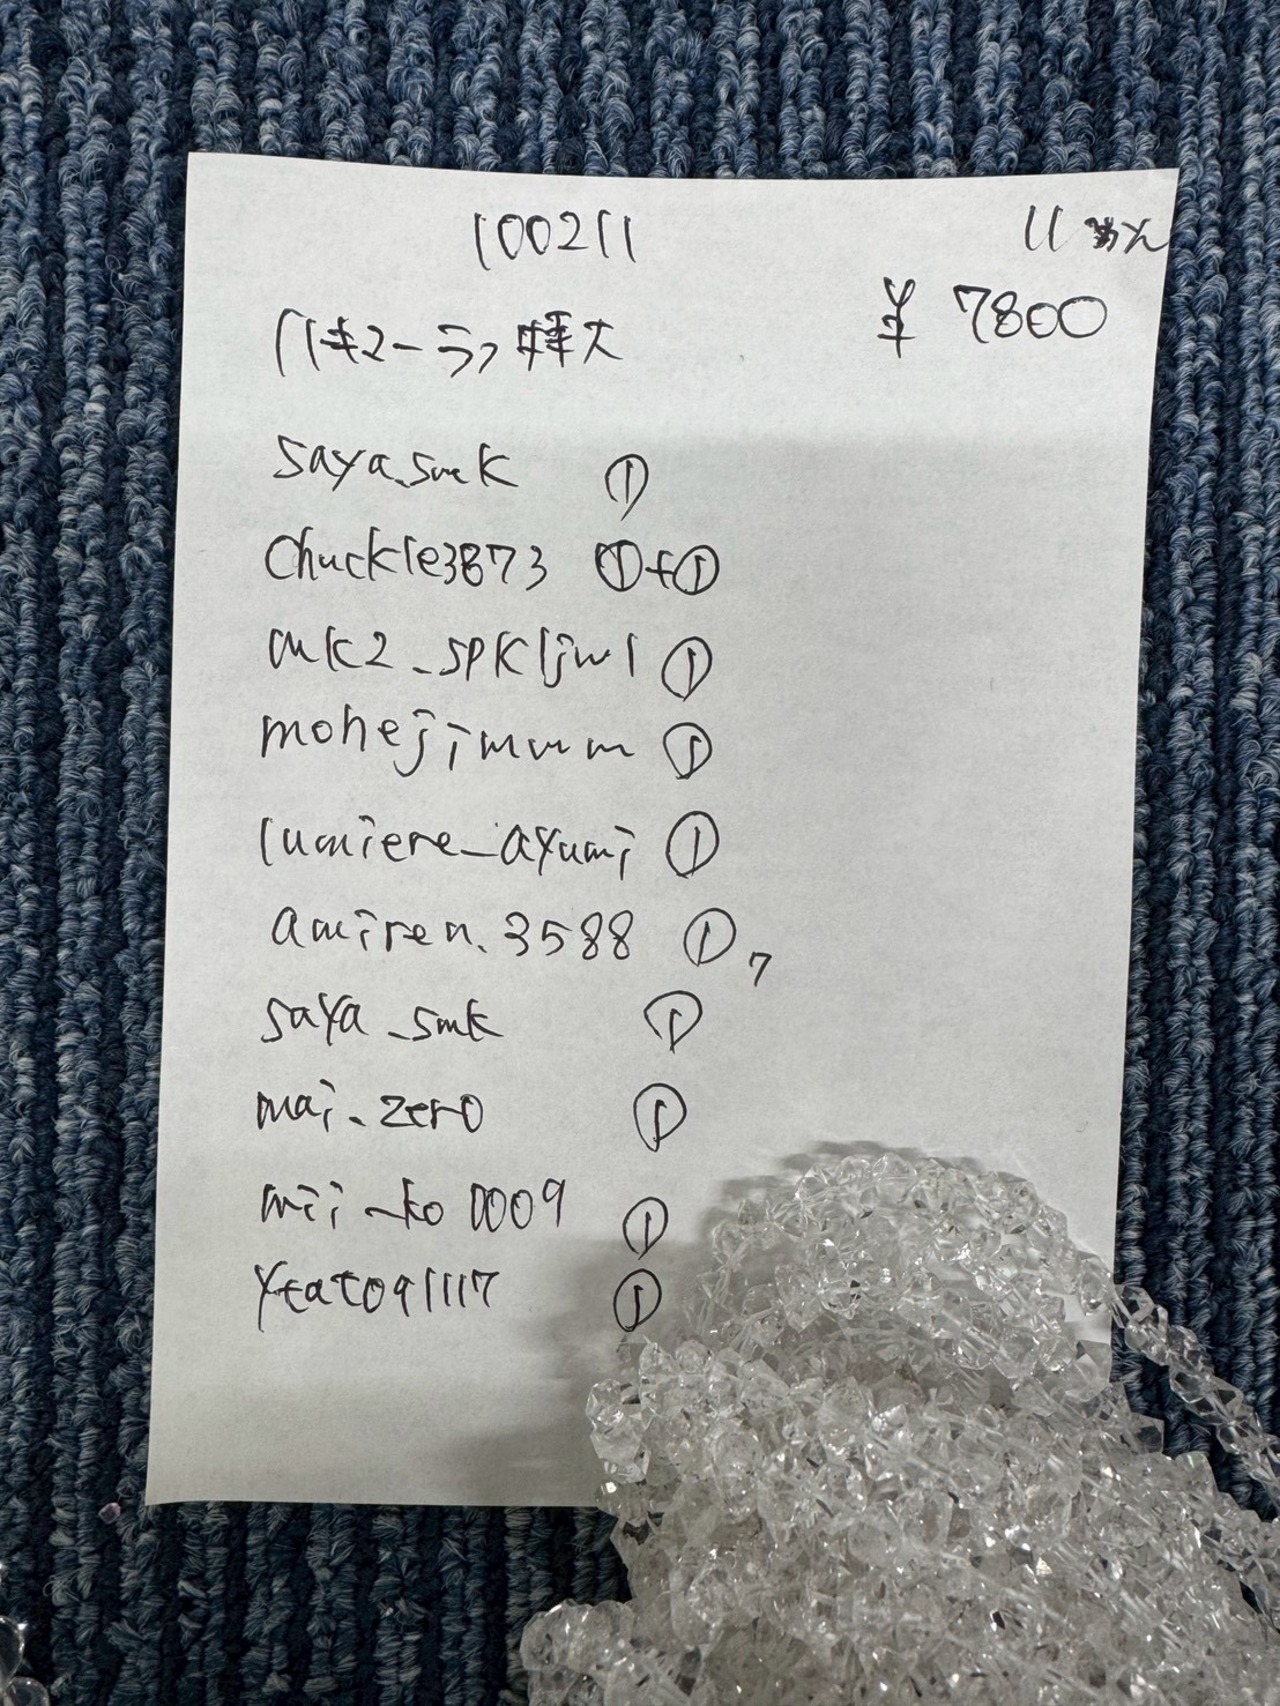 100211
11
¥ 7800
saya_smk ①
chuckle3873 ①+①
mk2_spkljwl ①
mohejimum ①
lumiere_ayumi ①
amiren.3588 ① 7
saya_smk ①
mai_zero ①
mii_ko0009 ①
ytato91117 ①